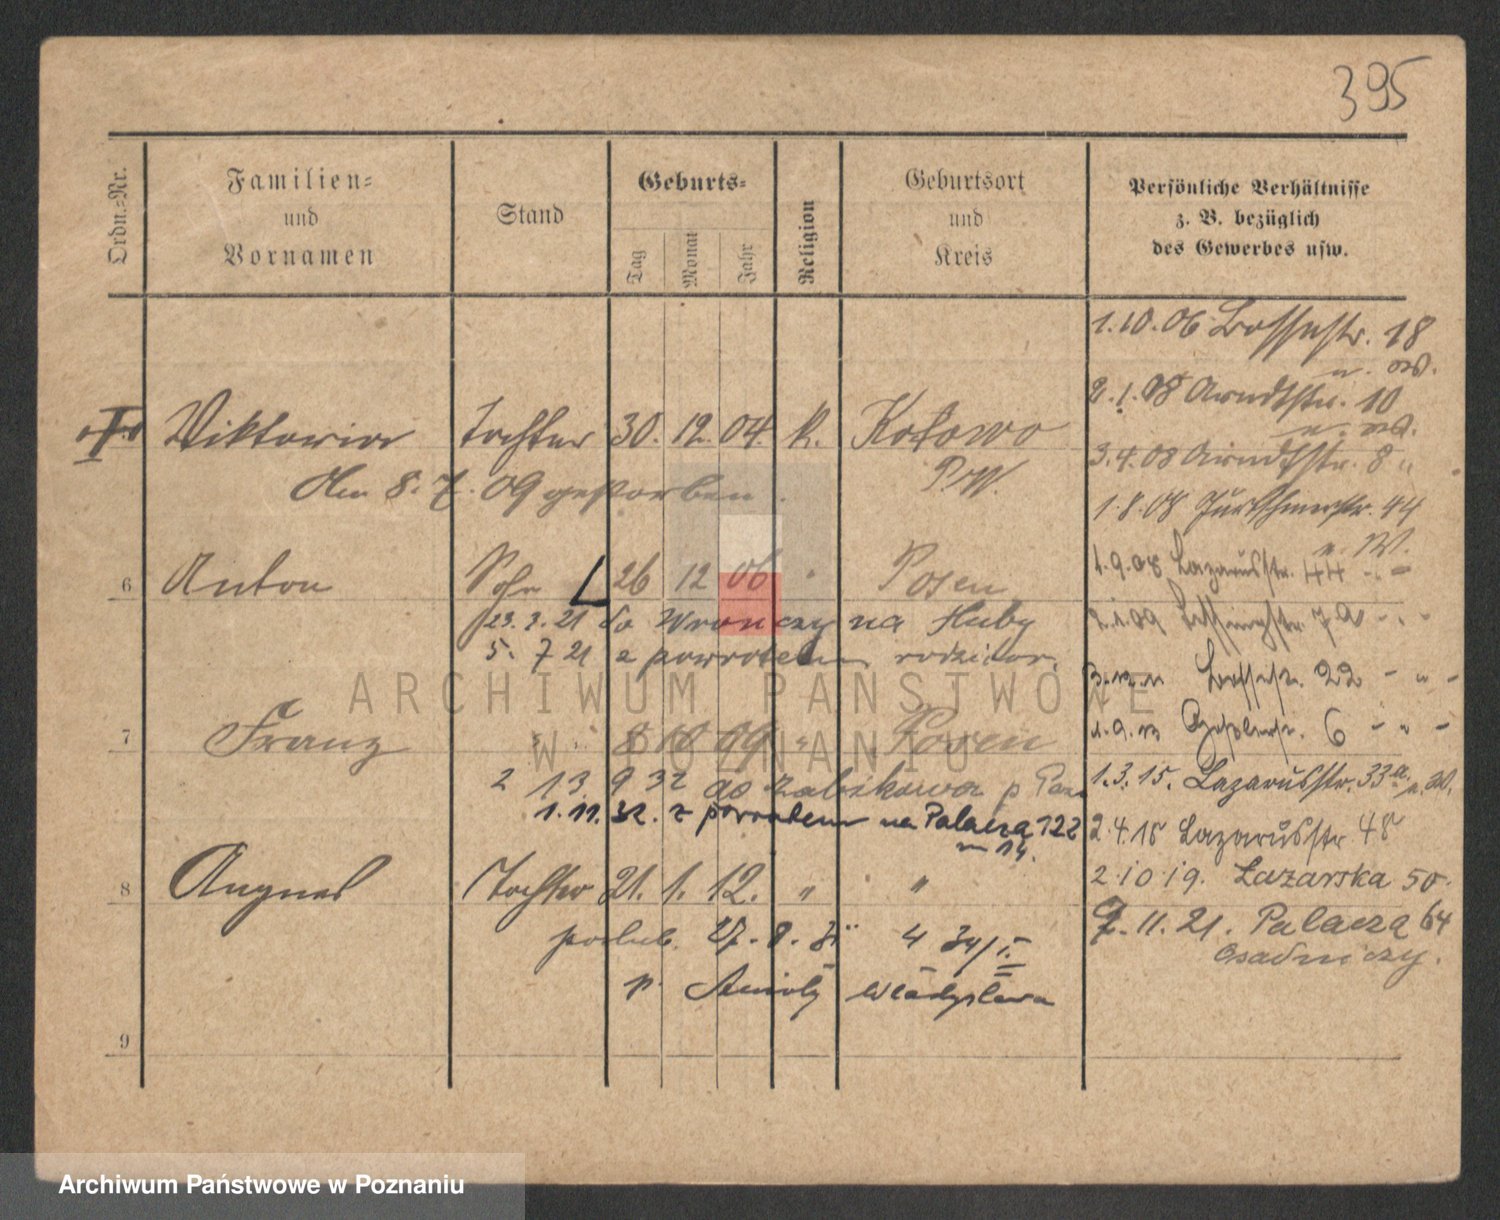 395
Ordn.-Nr.
Familien-
und
Vornamen
Stand
Geburts-
Tag
Monat
Jahr
Religion
Geburtsort
und
Kreis
Persönliche Verhältnisse
z. B. bezüglich
des Gewerbes usw.
1.10.06 Bossestr. 18
u. W.
Viktoria Tochter 30. 12. 04. k. Kotowo
P. W.
Am 8. 7. 09 gestorben.
2.1.08 Arndtstr. 10
u. W.
3.4.08 Arndtstr. 8 "
1.8.08 44
u. W.
6 Anton Sohn 26 12 06 " Posen
1.9.08 Lazarusstr. 44 - " -
23. 3. 21 do Wronczy na Huby
5. 7 21 z powrotem
2.1.09
22 - " -
7 Franz " 8 10 09 " Posen
6 - " -
13. 9 32 do Zabikowa p
1. 11. 32. z powrotem na Palacza 122
m 14.
1.3.15. Lazarusstr. 33a. u. W.
2.4.15 Lazarusstr 48
8 Angnes Tochter 21. 1. 12. " "
2 10 19. Łazarska 50.
poslub. 27. 8. 4 34/I
p. Władysława
11. 21. Palacza 64
Osadniczy.
9
ARCHIWUM PAŃSTWOWE
W POZNANIU
Archiwum Państwowe w Poznaniu